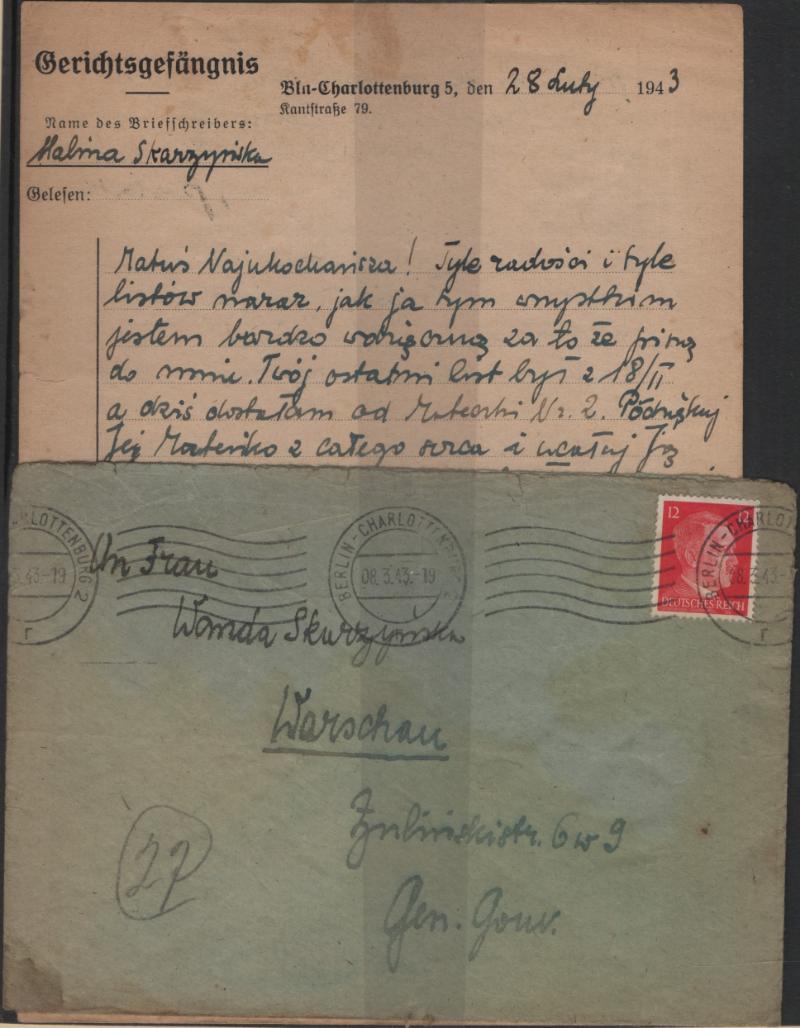 Gerichtsgefängnis
Bln-Charlottenburg 5, den 28 Luty 1943
Kantstraße 79.
Name des Briefschreibers:
Halina Skarzyńska
Gelesen:
Matuś Najukochańsza! Tyle radości i tyle
listów naraz, jak ja tym wszystkim
jestem bardzo wdzięczną za to że piszą
do mnie. Twój ostatni list był z 18/II
a dziś dostałam od Nr. 2. Podziękuj
Jej Mateńko z całego serca i ucałuj Ją
12 12
DEUTSCHES REICH
CHARLOTTENBURG 2
3.43.-19
r
BERLIN-CHARLOTTENBURG 2
08.3.43.-19
BERLIN-CHARLO
08.3.43.-
r
An Frau
Wanda Skarzyńska
Warschau
Żulińskistr. 6 w 9
Gen. Gouv.
27